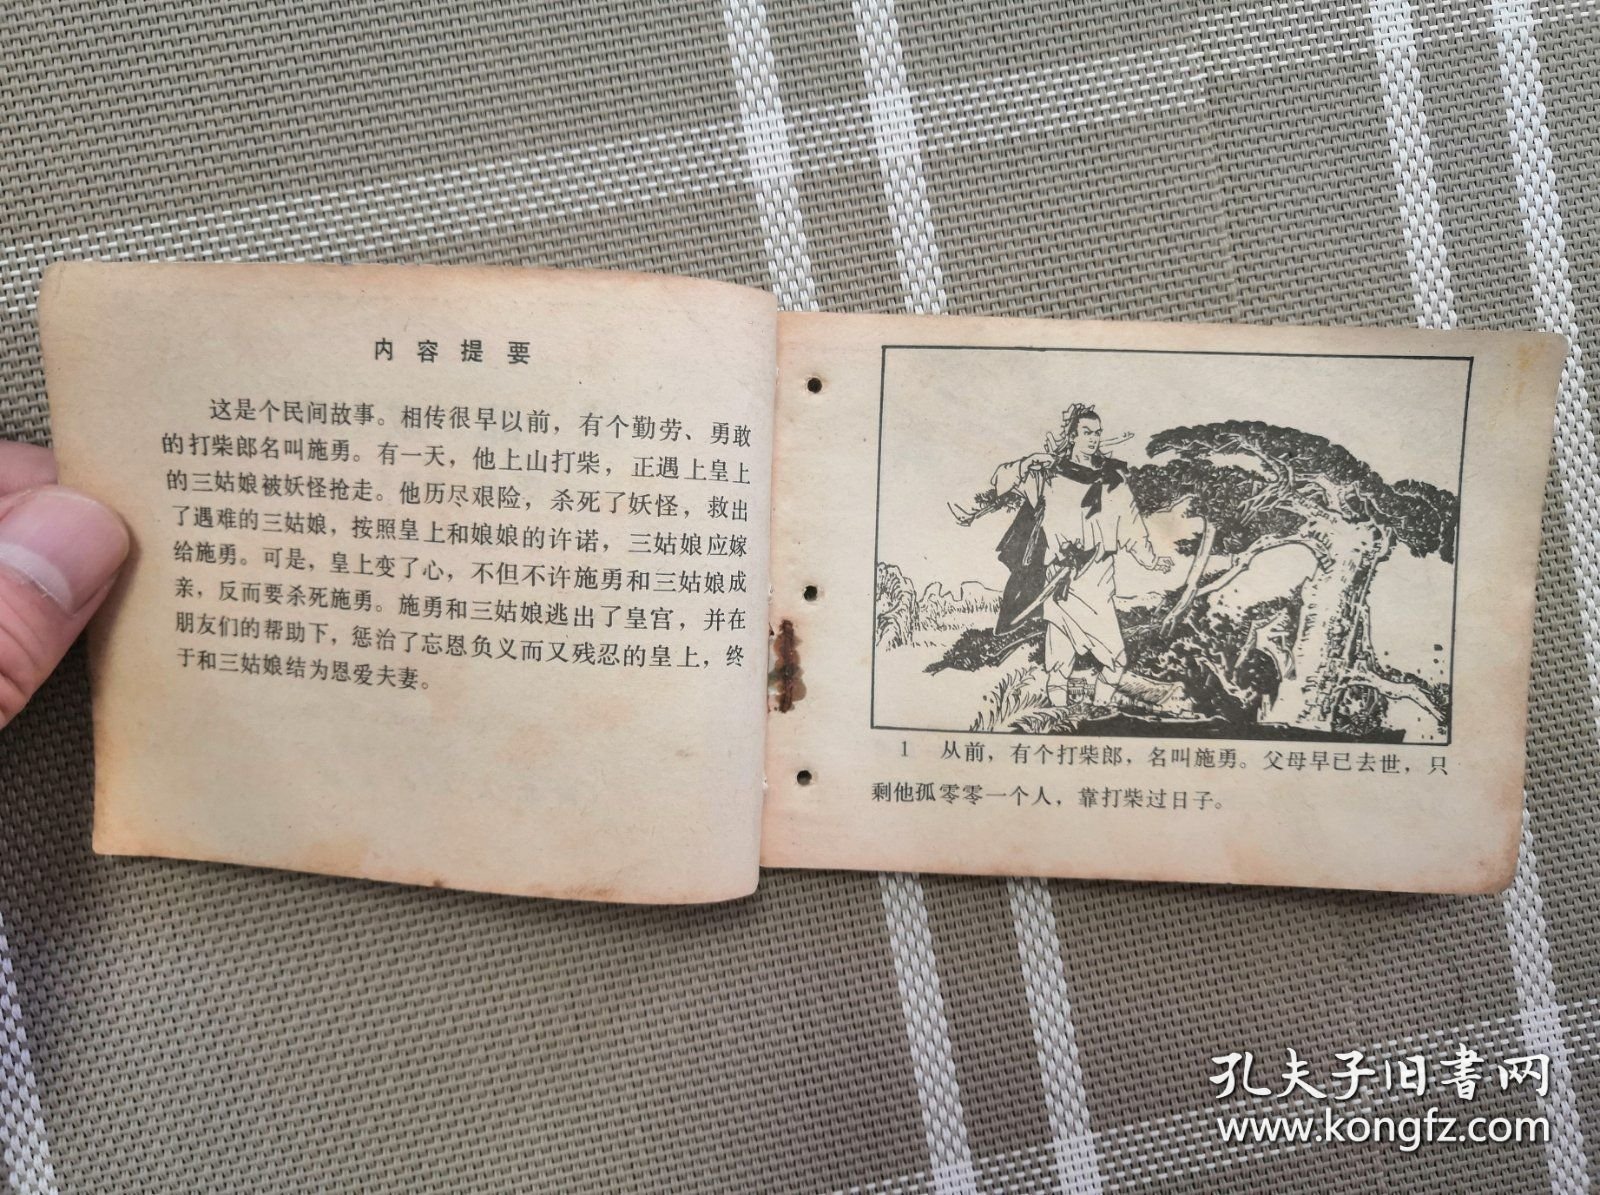 内容提要
这是个民间故事。相传很早以前，有个勤劳、勇敢
的打柴郎名叫施勇。有一天，他上山打柴，正遇上皇上
的三姑娘被妖怪抢走。他历尽艰险，杀死了妖怪，救出
了遇难的三姑娘，按照皇上和娘娘的许诺，三姑娘应嫁
给施勇。可是，皇上变了心，不但不许施勇和三姑娘成
亲，反而要杀死施勇。施勇和三姑娘逃出了皇宫，并在
朋友们的帮助下，惩治了忘恩负义而又残忍的皇上，终
于和三姑娘结为恩爱夫妻。
1 从前，有个打柴郎，名叫施勇。父母早已去世，只
剩他孤零零一个人，靠打柴过日子。
孔夫子旧书网
www.kongfz.com